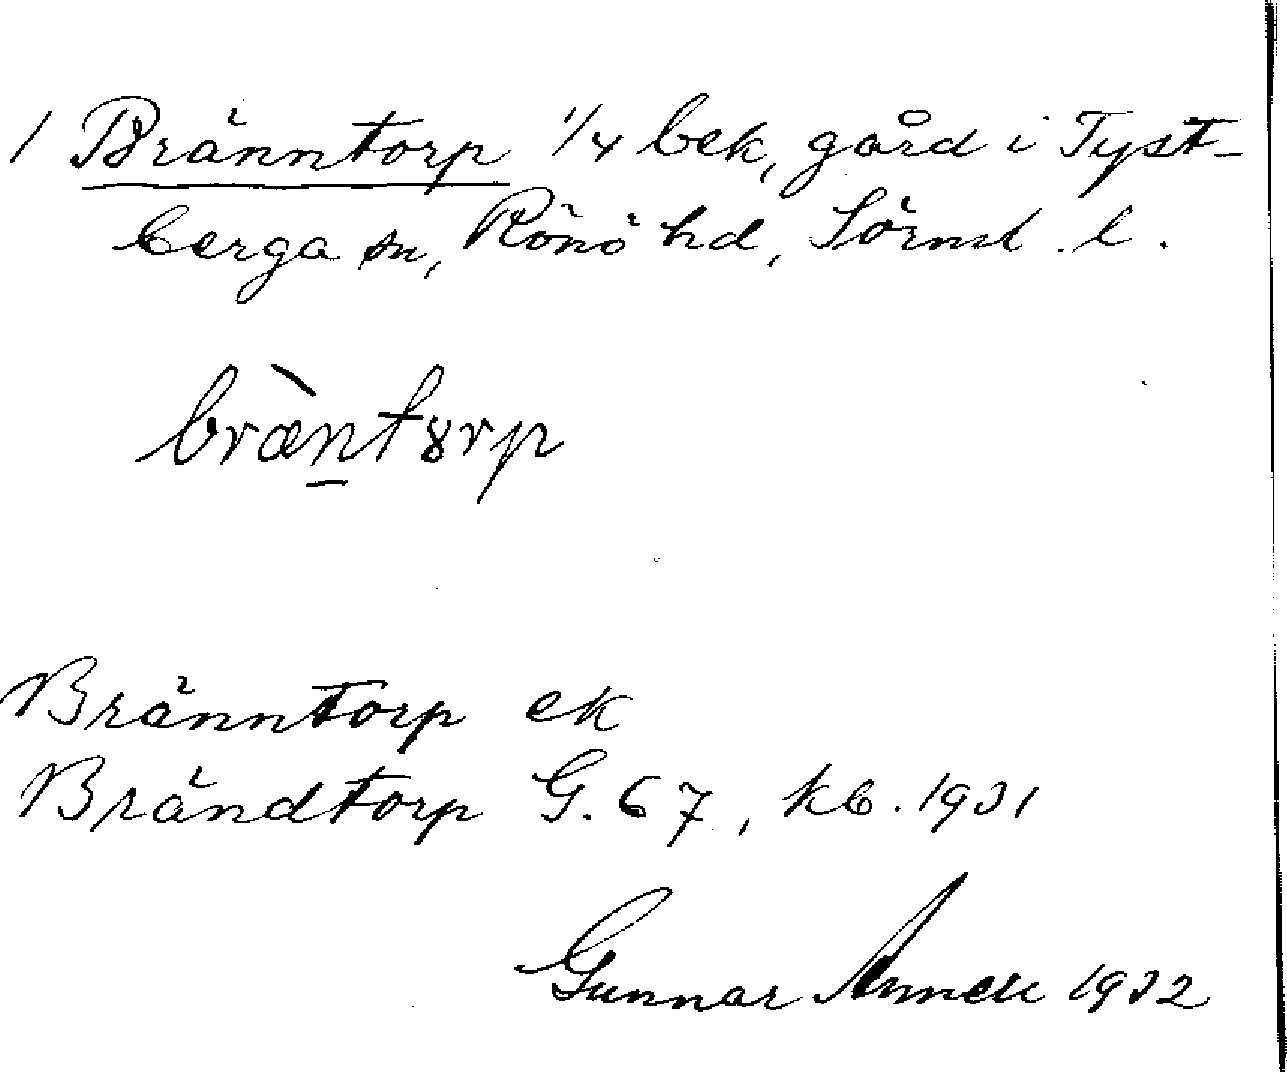 1 Bränntorp 1/4 bek, gård i Tyst-
berga sn, Rönö hd, Sörml. l.
bræ̀n̠tȣrp
Bränntorp ek
Brändtorp G. 67, kb. 1931
Gunnar 1932